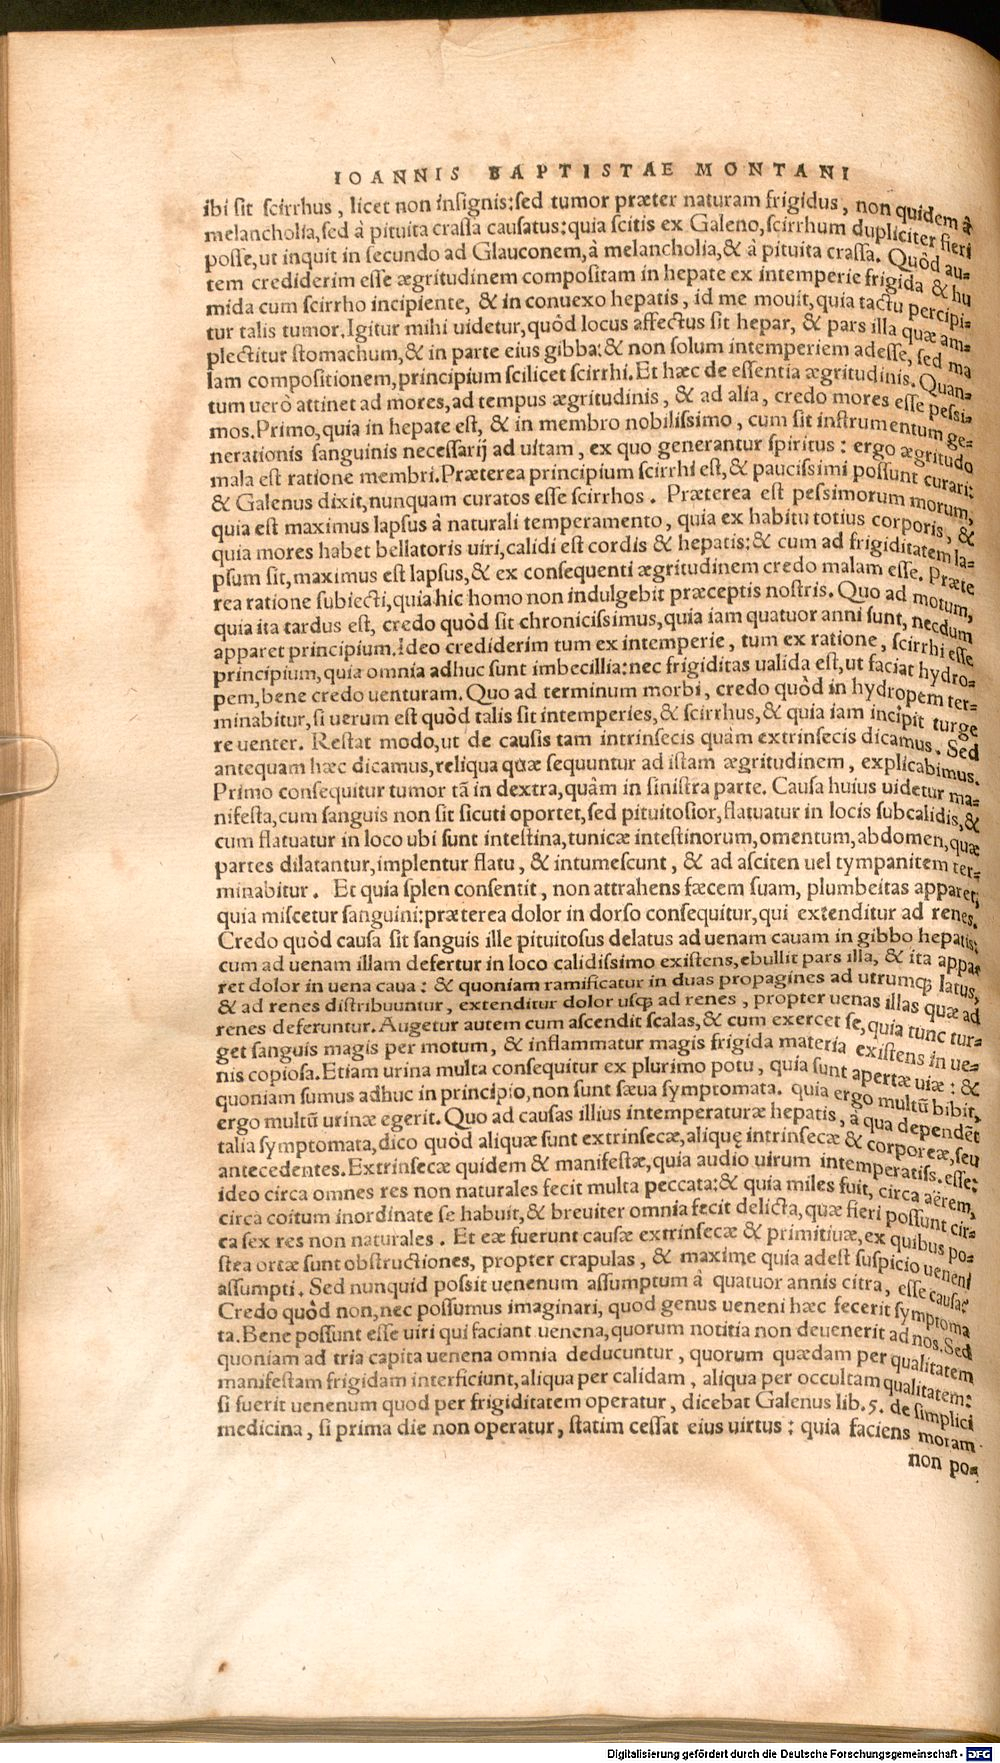 IOANNIS BAPTISTAE MONTANI
ibi sit scirrhus, licet non insignis: sed tumor præter naturam frigidus, non quidem à
melancholia, sed à pituita crassa causatus: quia scitis ex Galeno, scirrhum dupliciter fieri
posse, ut inquit in secundo ad Glauconem, à melancholia, & à pituita crassa. Quòd au-
tem crediderim esse ægritudinem compositam in hepate ex intemperie frigida & hu
mida cum scirrho incipiente, & in conuexo hepatis, id me mouit, quia tactu percipi-
tur talis tumor. Igitur mihi uidetur, quòd locus affectus sit hepar, & pars illa quæ am-
plectitur stomachum, & in parte eius gibba: & non solum intemperiem adesse, sed ma
lam compositionem, principium scilicet scirrhi. Et hæc de essentia ægritudinis. Quan-
tum uerò attinet ad mores, ad tempus ægritudinis, & ad alia, credo mores esse pessi-
mos. Primo, quia in hepate est, & in membro nobilissimo, cum sit instrumentum ge-
nerationis sanguinis necessarij ad uitam, ex quo generantur spiritus: ergo ægritudo
mala est ratione membri. Præterea principium scirrhi est, & paucissimi possunt curari:
& Galenus dixit, nunquam curatos esse scirrhos. Præterea est pessimorum morum,
quia est maximus lapsus à naturali temperamento, quia ex habitu totius corporis, &
quia mores habet bellatoris uiri, calidi est cordis & hepatis: & cum ad frigiditatem la-
psum sit, maximus est lapsus, & ex consequenti ægritudinem credo malam esse. Præte
rea ratione subiecti, quia hic homo non indulgebit præceptis nostris. Quo ad motum,
quia ita tardus est, credo quòd sit chronicissimus, quia iam quatuor anni sunt, necdum
apparet principium. Ideo crediderim tum ex intemperie, tum ex ratione, scirrhi esse
principium, quia omnia adhuc sunt imbecillia: nec frigiditas ualida est, ut faciat hydro-
pem, bene credo uenturam. Quo ad terminum morbi, credo quòd in hydropem ter-
minabitur, si uerum est quòd talis sit intemperies, & scirrhus, & quia iam incipit turge
re uenter. Restat modo, ut de causis tam intrinsecis quàm extrinsecis dicamus. Sed
antequam hæc dicamus, reliqua quæ sequuntur ad istam ægritudinem, explicabimus.
Primo consequitur tumor tã in dextra, quàm in sinistra parte. Causa huius uidetur ma-
nifesta, cum sanguis non sit sicuti oportet, sed pituitosior, flatuatur in locis subcalidis, &
cum flatuatur in loco ubi sunt intestina, tunicæ intestinorum, omentum, abdomen, quæ
partes dilatantur, implentur flatu, & intumescunt, & ad asciten uel tympanitem ter-
minabitur. Et quia splen consentit, non attrahens fæcem suam, plumbeitas apparet,
quia miscetur sanguini: præterea dolor in dorso consequitur, qui extenditur ad renes.
Credo quòd causa sit sanguis ille pituitosus delatus ad uenam cauam in gibbo hepatis:
cum ad uenam illam defertur in loco calidissimo existens, ebullit pars illa, & ita appa-
ret dolor in uena caua: & quoniam ramificatur in duas propagines ad utrumq; latus,
& ad renes distribuuntur, extenditur dolor usq; ad renes, propter uenas illas quæ ad
renes deferuntur. Augetur autem cum ascendit scalas, & cum exercet se, quia tunc tur-
get sanguis magis per motum, & inflammatur magis frigida materia existens in ue-
nis copiosa. Etiam urina multa consequitur ex plurimo potu, quia sunt apertæ uiæ: &
quoniam sumus adhuc in principio, non sunt sæua symptomata. quia ergo multũ bibit,
ergo multũ urinæ egerit. Quo ad causas illius intemperaturæ hepatis, à qua dependẽt
talia symptomata, dico quòd aliquæ sunt extrinsecæ, aliquę intrinsecæ & corporeæ, seu
antecedentes. Extrinsecæ quidem & manifestæ, quia audio uirum intemperatiss. esse:
ideo circa omnes res non naturales fecit multa peccata: & quia miles fuit, circa aërem,
circa coitum inordinate se habuit, & breuiter omnia fecit delicta, quæ fieri possunt cir-
ca sex res non naturales. Et eæ fuerunt causæ extrinsecæ & primitiuæ, ex quibus po-
stea ortæ sunt obstructiones, propter crapulas, & maxime quia adest suspicio ueneni
assumpti. Sed nunquid possit uenenum assumptum à quatuor annis citra, esse causa?
Credo quòd non, nec possumus imaginari, quod genus ueneni hæc fecerit symptoma
ta. Bene possunt esse uiri qui faciant uenena, quorum notitia non deuenerit ad nos. Sed
quoniam ad tria capita uenena omnia deducuntur, quorum quædam per qualitatem
manifestam frigidam interficiunt, aliqua per calidam, aliqua per occultam qualitatem:
si fuerit uenenum quod per frigiditatem operatur, dicebat Galenus lib. 5. de simplici
medicina, si prima die non operatur, statim cessat eius uirtus: quia faciens moram
non po-
Digitalisierung gefördert durch die Deutsche Forschungsgemeinschaft - DFG